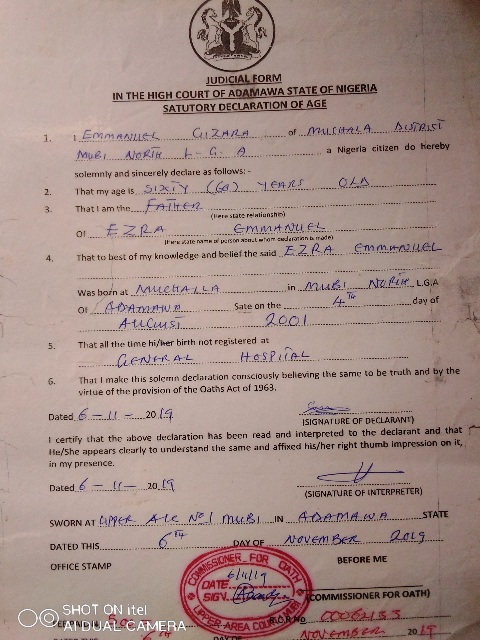 JUDICIAL FORM
IN THE HIGH COURT OF ADAMAWA STATE OF NIGERIA
SATUTORY DECLARATION OF AGE
1. I EMMANUEL GIZARA of MUCHALA DISTRICT
MUBI NORTH L-G.A a Nigeria citizen do hereby
solemnly and sincerely declare as follows: -
2. That my age is SIXTY (60) YEARS OLD
3. That I am the FATHER
(Here state relationship)
Of EZRA EMMANUEL
(Here state name of person about whom declaration is made)
4. That to best of my knowledge and belief the said EZRA EMMANUEL
Was born at MUCHALLA in MUBI NORTH L.G.A
Of ADAMAWA Sate on the 4TH day of
AUGUST 2001
5. That all the time his/her birth not registered at
GENERAL HOSPITAL
6. That I make this solemn declaration consciously believing the same to be truth and by the
virtue of the provision of the Oaths Act of 1963.
Dated 6-11-2019
(SIGNATURE OF DECLARANT)
I certify that the above declaration has been read and interpreted to the declarant and that
He/She appears clearly to understand the same and affixed his/her right thumb impression on it,
in my presence.
Dated 6-11-2019
(SIGNATURE OF INTERPRETER)
SWORN AT UPPER A/C No 1 MUBI IN ADAMAWA STATE
DATED THIS 6TH DAY OF NOVEMBER 2019
OFFICE STAMP BEFORE ME
COMMISSIONER FOR OATH
DATE 6/11/19
SIGN.
UPPER AREA COURT MUBI
(COMMISSIONER FOR OATH)
R.C.R No
NOVEMBER 2019
SHOT ON itel
AND DUAL CAMERA